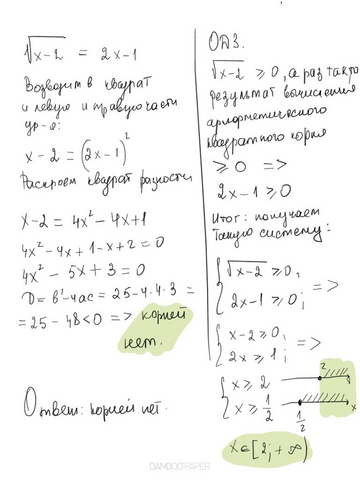 √x-2 = 2x-1
Возводим в квадрат
и левую и правую части
ур-я:
x-2 = (2x-1)²
Раскроем квадрат разности
x-2 = 4x² - 4x+1
4x² - 4x + 1 - x + 2 = 0
4x² - 5x + 3 = 0
D = b² - 4ac = 25 - 4·4·3 =
= 25 - 48 < 0 => корней
нет.
Ответ: корней нет.
ОДЗ.
√x-2 ≥ 0, а раз так то
результат вычисления
арифметического
квадратного корня
≥ 0 =>
2x-1 ≥ 0
Итог: получаем
такую систему:
{ √x-2 ≥ 0,
2x-1 ≥ 0; =>
{ x-2 ≥ 0,
2x ≥ 1; =>
{ x ≥ 2
x ≥ 1/2
2
1/2
x
x ∈ [2; +∞)
BAMBOO PAPER